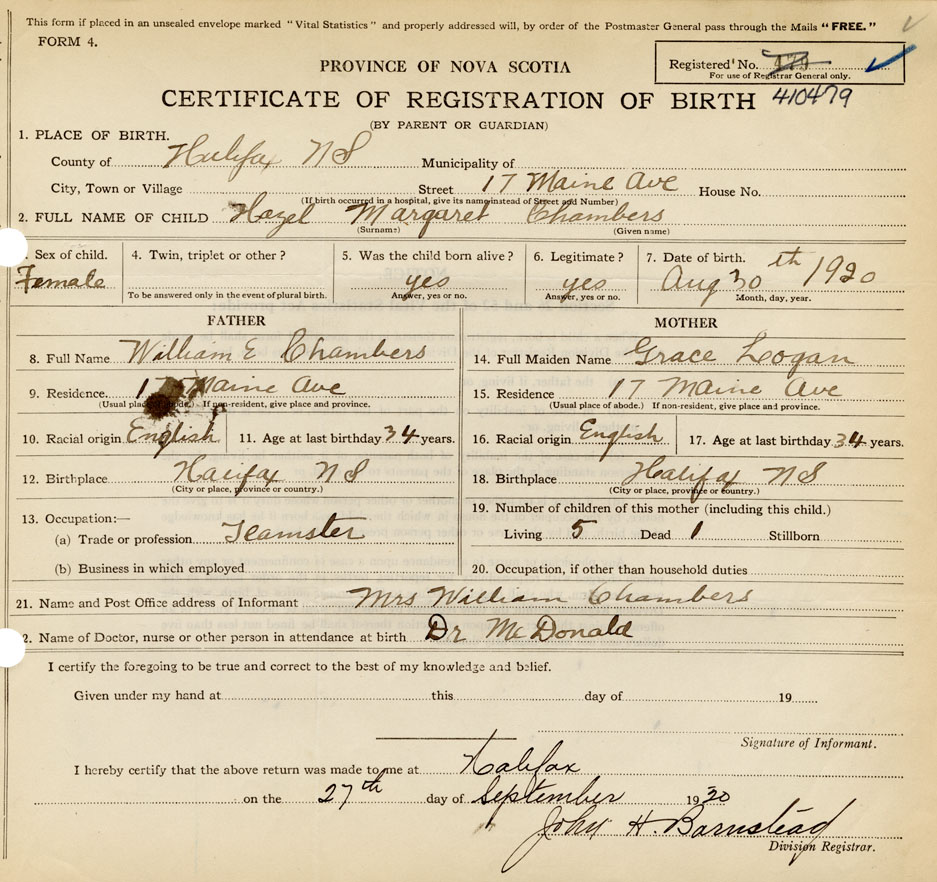 This form if placed in an unsealed envelope marked "Vital Statistics" and properly addressed will, by order of the Postmaster General pass through the Mails "FREE."
FORM 4.
Registered No. 479
For use of Registrar General only.
PROVINCE OF NOVA SCOTIA
CERTIFICATE OF REGISTRATION OF BIRTH 410479
(BY PARENT OR GUARDIAN)
1. PLACE OF BIRTH.
County of Halifax NS Municipality of
City, Town or Village Street 17 Maine Ave House No.
(If birth occurred in a hospital, give its name instead of Street and Number)
2. FULL NAME OF CHILD Hazel Margaret Chambers
(Surname) (Given name)
. Sex of child. Female
4. Twin, triplet or other?
To be answered only in the event of plural birth.
5. Was the child born alive? yes
Answer, yes or no.
6. Legitimate? yes
Answer, yes or no.
7. Date of birth. Aug 30th 1920
Month, day, year.
FATHER
8. Full Name William E Chambers
9. Residence. 17 Maine Ave
(Usual place of abode.) If non-resident, give place and province.
10. Racial origin English 11. Age at last birthday 34 years.
12. Birthplace Haifax NS
(City or place, province or country.)
13. Occupation:—
(a) Trade or profession Teamster
(b) Business in which employed
MOTHER
14. Full Maiden Name Grace Logan
15. Residence 17 Maine Ave
(Usual place of abode.) If non-resident, give place and province.
16. Racial origin English 17. Age at last birthday 34 years.
18. Birthplace Halifax NS
(City or place, province or country.)
19. Number of children of this mother (including this child.)
Living 5 Dead 1 Stillborn
20. Occupation, if other than household duties
21. Name and Post Office address of Informant Mrs William Chambers
2. Name of Doctor, nurse or other person in attendance at birth Dr McDonald
I certify the foregoing to be true and correct to the best of my knowledge and belief.
Given under my hand at this day of 19
Signature of Informant.
I hereby certify that the above return was made to me at Halifax
on the 27th day of September 1920
John H. Barnstead
Division Registrar.